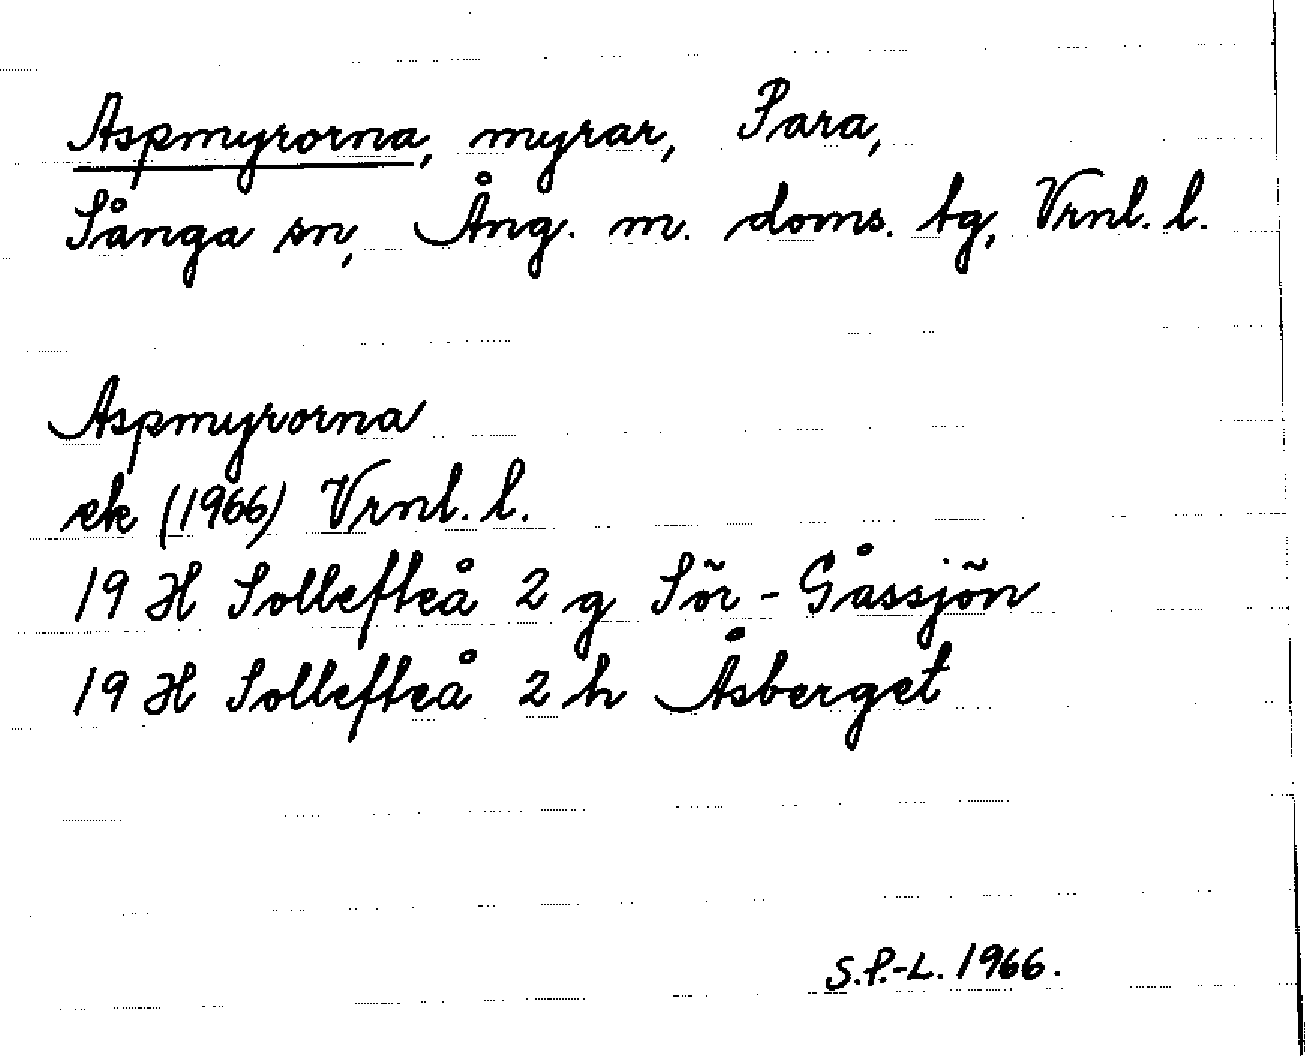 Aspmyrorna, myrar, Para,
Sånga sn, Ång. m. doms. tg, Vrnl. l.
Aspmyrorna
ek (1966) Vrnl. l.
19 H Sollefteå 2 g Sör-Gåssjön
19 H Sollefteå 2 h Åsberget
S.P.-L. 1966.